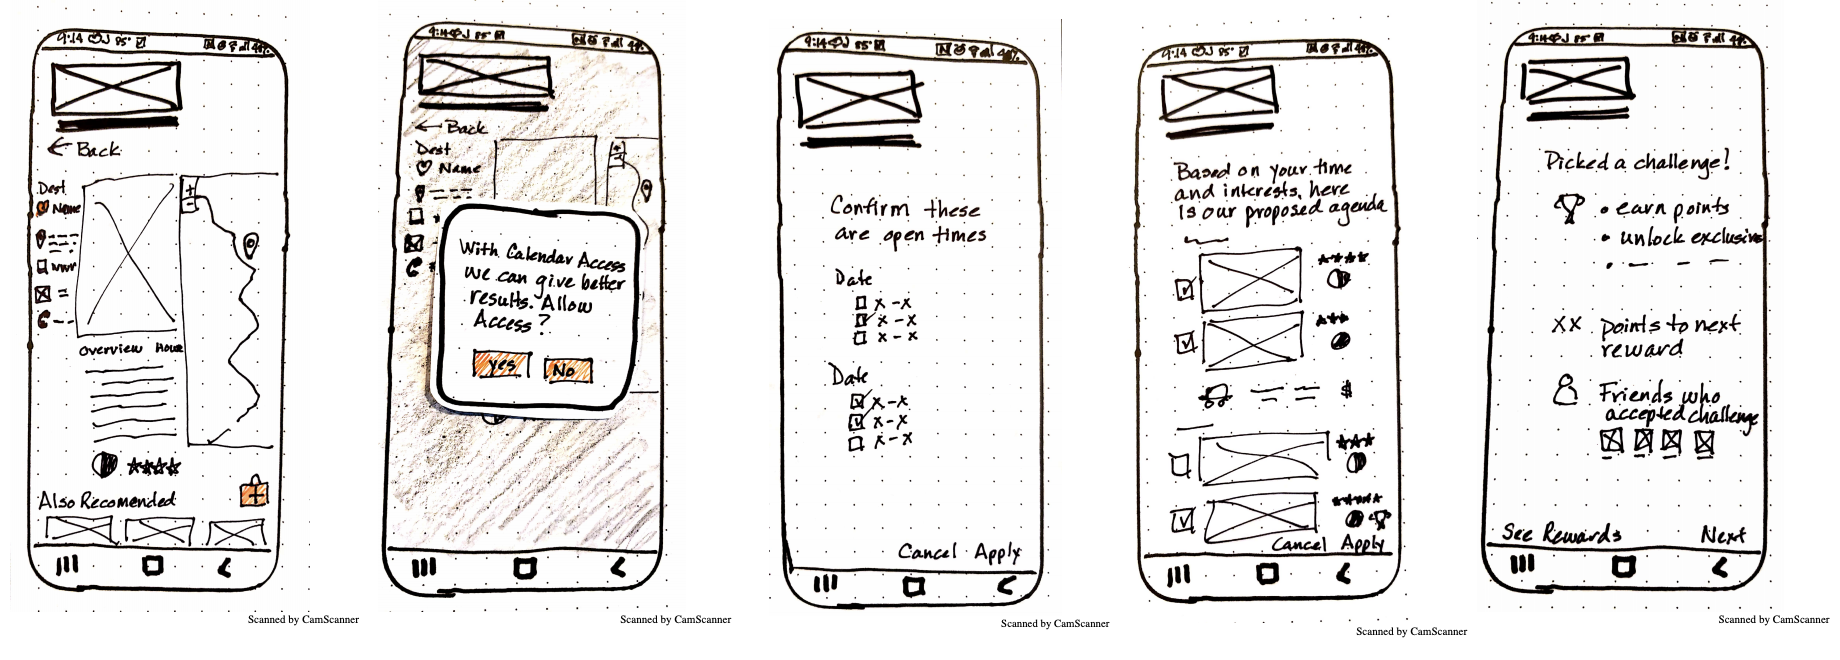 9:14 85°
← Back
Dest
Name
Overview Hour
Also Recomended
Scanned by CamScanner
9:14 85°
← Back
Dest
Name
With Calendar Access
we can give better
results. Allow
Access?
Yes
No
Scanned by CamScanner
9:14 85°
Confirm these
are open times
Date
x - x
x - x
x - x
Date
x - x
x - x
x - x
Cancel Apply
Scanned by CamScanner
9:14 85°
Based on your time
and interests, here
is our proposed agenda
$
Cancel Apply
Scanned by CamScanner
9:14 85°
Picked a challenge!
• earn points
• unlock exclusive
XX points to next
reward
Friends who
accepted challenge
See Rewards Next
Scanned by CamScanner